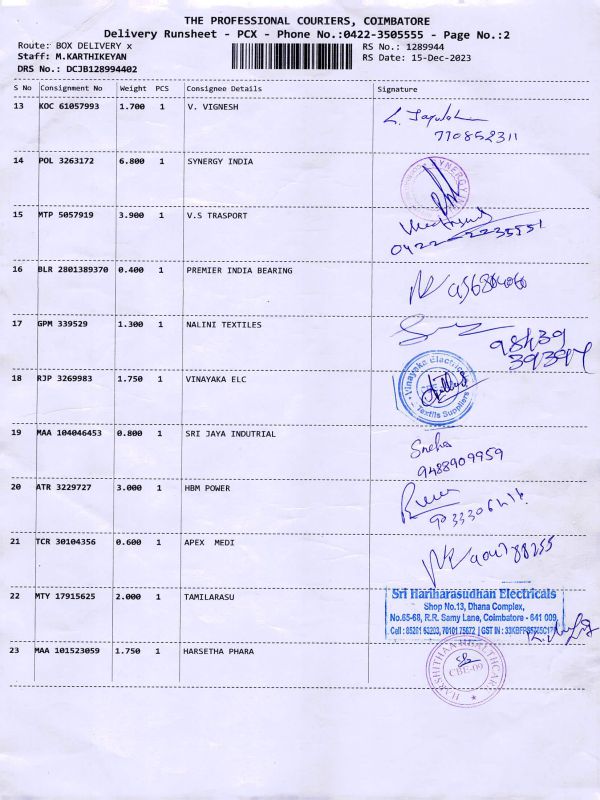 THE PROFESSIONAL COURIERS, COIMBATORE
Delivery Runsheet - PCX - Phone No.:0422-3505555 - Page No.:2
Route: BOX DELIVERY x
RS No.: 1289944
Staff: M.KARTHIKEYAN
RS Date: 15-Dec-2023
DRS No.: DCJB128994402
S No Consignment No Weight PCS Consignee Details Signature
13 KOC 61057993 1.700 1 V. VIGNESH
770852311
14 POL 3263172 6.800 1 SYNERGY INDIA
SYNERGY
15 MTP 5057919 3.900 1 V.S TRASPORT
0422-2235551
16 BLR 2801389370 0.400 1 PREMIER INDIA BEARING
17 GPM 339529 1.300 1 NALINI TEXTILES
18 RJP 3269983 1.750 1 VINAYAKA ELC
Vinayaka Electrical
Textils Suppliers
19 MAA 104046453 0.800 1 SRI JAYA INDUTRIAL
Sneha
9488909959
20 ATR 3229727 3.000 1 HBM POWER
21 TCR 30104356 0.600 1 APEX MEDI
22 MTY 17915625 2.000 1 TAMILARASU
Sri Hariharasudhan Electricals
Shop No.13, Dhana Complex,
No.65-68, R.R. Samy Lane, Coimbatore - 641 009.
Cell : 85261 63203, 70101 75672 | GST IN :
23 MAA 101523059 1.750 1 HARSETHA PHARA
HARSHITHAN HEALTHCARE
CBE-09